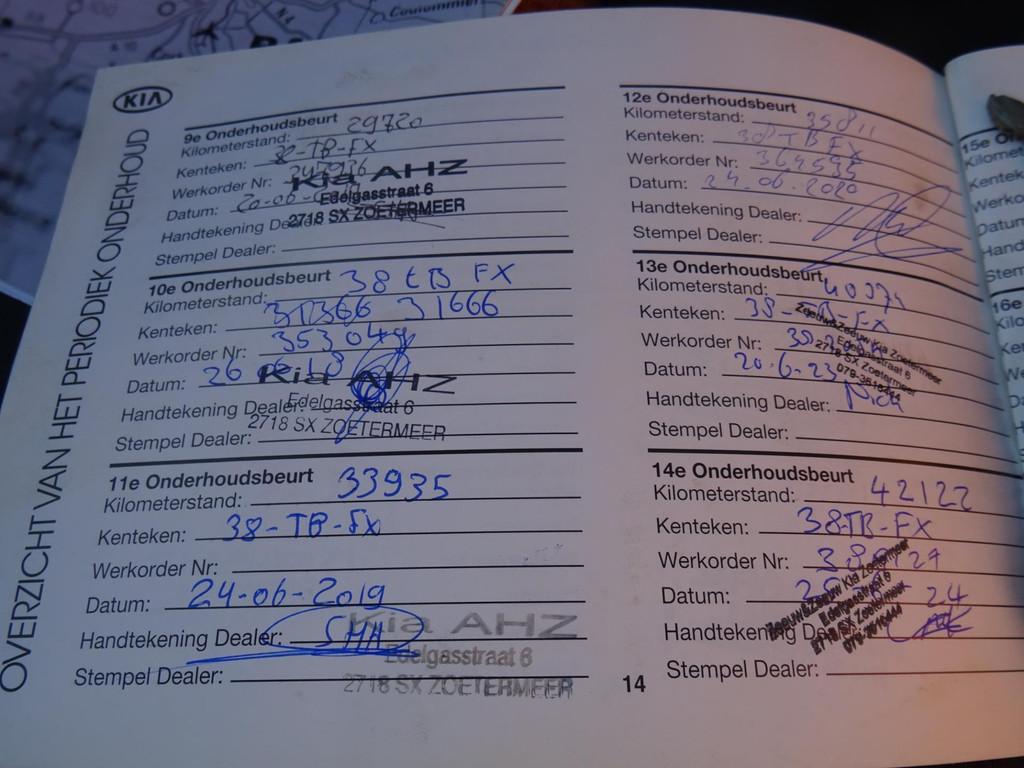 Coulommier
KIA
OVERZICHT VAN HET PERIODIEK ONDERHOUD
9e Onderhoudsbeurt
Kilometerstand: 29720
Kenteken: 38-TB-FX
Werkorder Nr:
Datum: 20-06-
Handtekening Dealer:
Stempel Dealer:
Kia AHZ
Edelgasstraat 6
2718 SX ZOETERMEER
10e Onderhoudsbeurt 38 tB FX
Kilometerstand: 31666
Kenteken:
Werkorder Nr: 353049
Datum: 26 18
Handtekening Dealer:
Stempel Dealer:
Kia AHZ
Edelgasstraat 6
2718 SX ZOETERMEER
11e Onderhoudsbeurt
Kilometerstand: 33935
Kenteken: 38-TB-FX
Werkorder Nr:
Datum: 24-06-2019
Handtekening Dealer: SHH
Stempel Dealer:
Kia AHZ
Edelgasstraat 6
2718 SX ZOETERMEER
12e Onderhoudsbeurt
Kilometerstand: 35811
Kenteken: 38-TB FX
Werkorder Nr: 364595
Datum: 24.06.2020
Handtekening Dealer:
Stempel Dealer:
13e Onderhoudsbeurt
Kilometerstand: 40974
Kenteken: 38-TB-FX
Werkorder Nr:
Datum: 20.6-23
Handtekening Dealer: Nick
Stempel Dealer:
Zeeuw&Zeeuw Kia Zoetermeer
Edelgasstraat 6
2718 SX Zoetermeer
14e Onderhoudsbeurt
Kilometerstand: 42122
Kenteken: 38-TB-FX
Werkorder Nr:
Datum: 24
Handtekening Dealer:
Stempel Dealer:
Zeeuw&Zeeuw Kia Zoetermeer
Edelgasstraat 6
2718 SX Zoetermeer
14
15e
16e